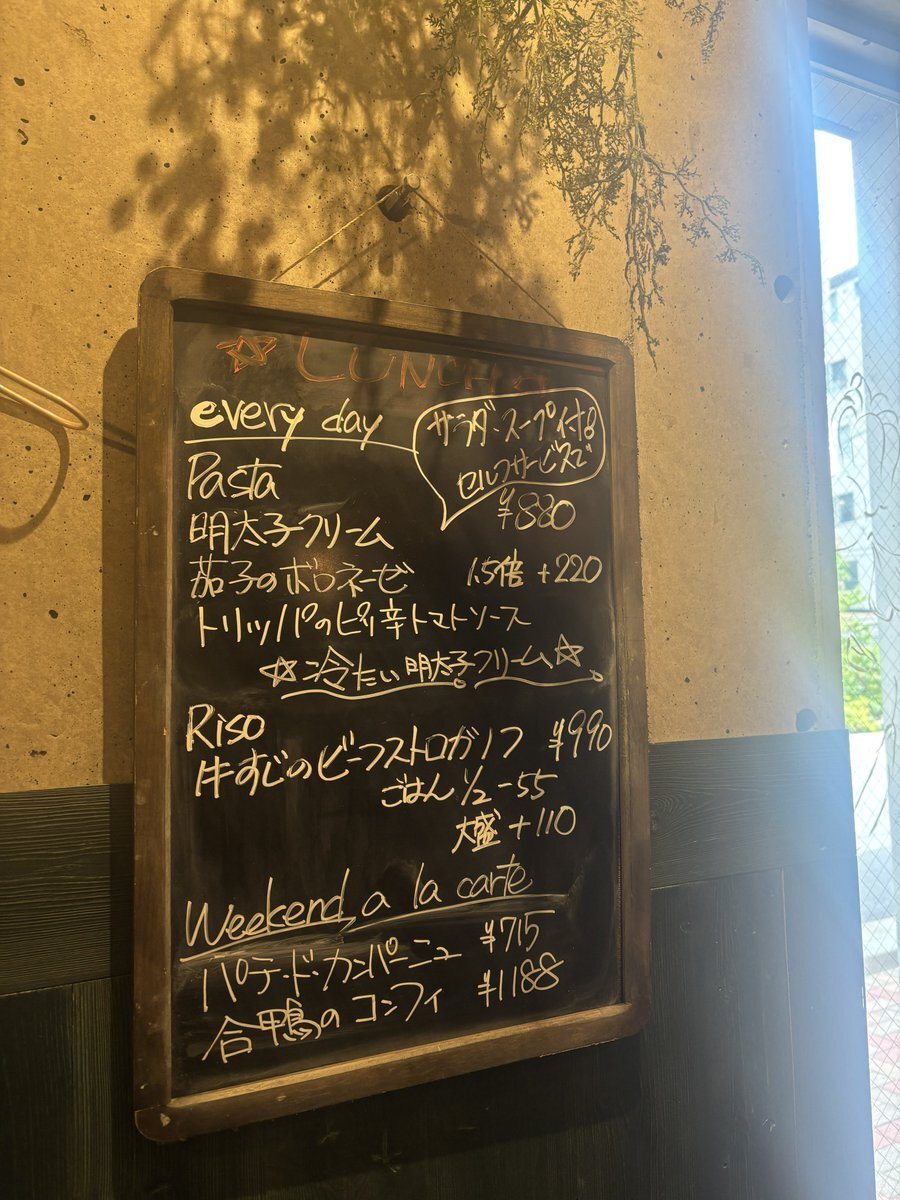 ☆ LUNCH ☆
every day
サラダ・スープ付!
セルフサービスで
Pasta
¥880
明太子クリーム
茄子のボロネーゼ 1.5倍 +220
トリッパのピリ辛トマトソース
☆冷たい明太子クリーム☆
Riso
牛すじのビーフストロガノフ ¥990
ごはん 1/2 -55
大盛 +110
Weekend a la carte
パテ・ド・カンパーニュ ¥715
合鴨のコンフィ ¥1188